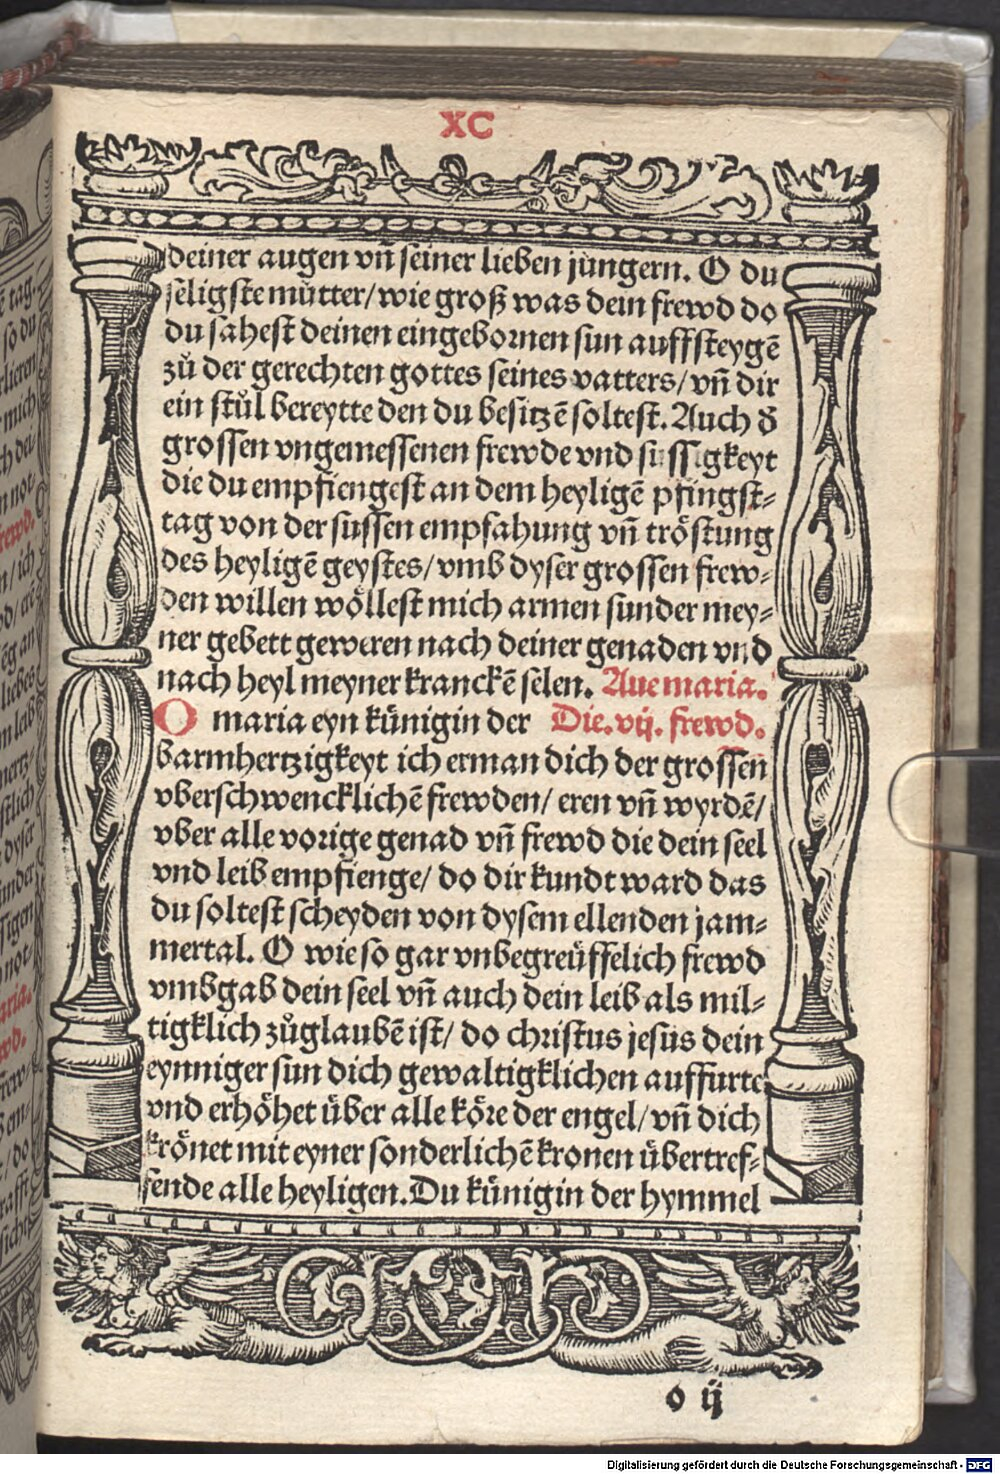 XC
deiner augen vn̄ seiner lieben jungern. O du
seligste mutter/wie groß was dein frewd do
du sahest deinen eingebornen sun auffsteygē
zů der gerechten gottes seines vatters/vn̄ dir
ein stůl bereytte den du besitzē soltest. Auch d̄
grossen vngemessenen frewde vnd sussigkeyt
die du empfiengest an dem heyligē pfingst⸗
tag von der sussen empfahung vn̄ tröstung
des heyligē geystes/vmb dyser grossen frew⸗
den willen wöllest mich armen sunder mey⸗
ner gebett geweren nach deiner genaden vnd
nach heyl meyner kranckē selen. Aue maria.
O maria eyn künigin der Die.vij. frewd.
barmhertzigkeyt ich erman dich der grossen
vberschwencklichē frewden/ eren vn̄ wyrdē/
vber alle vorige genad vn̄ frewd die dein seel
vnd leib empfienge/ do dir kundt ward das
du soltest scheyden von dysem ellenden jam⸗
mertal. O wie so gar vnbegreüffelich frewd
vmbgab dein seel vn̄ auch dein leib als mil⸗
tigklich zůglaubē ist/ do christus jesus dein
eynniger sun dich gewaltigklichen auffurte
vnd erhöhet über alle köre der engel/vn̄ dich
krönet mit eyner sonderlichē kronen übertref⸗
fende alle heyligen.Du künigin der hymmel
o ij
Digitalisierung gefördert durch die Deutsche Forschungsgemeinschaft - DFG